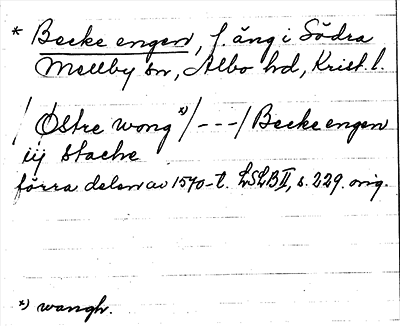 * Becke engen, f. äng i Södra
Mellby sn, Albo hd, Krist. l.
/ Østre wong *) / - - - / Becke engen
iij stache
förra delen av 1570-t. LSLB II, s. 229. orig.
*) wangh.